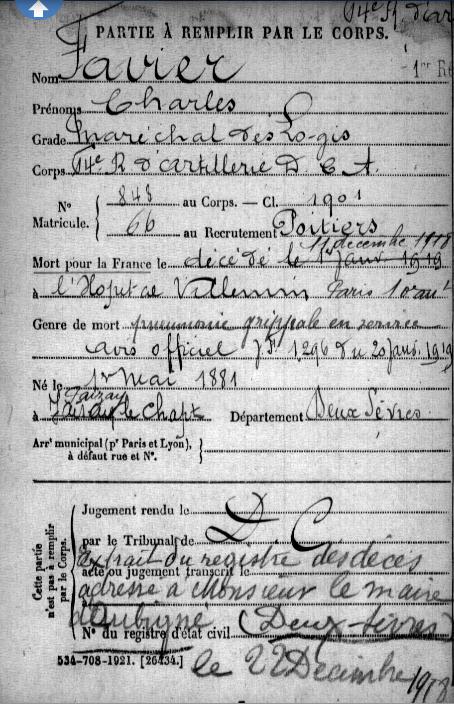 PARTIE À REMPLIR PAR LE CORPS.
Nom Favier
Prénoms Charles
Grade Maréchal des Logis
Corps 74e R d'artillerie D C A.
N° Matricule. { 848 au Corps. — Cl. 1901
66 au Recrutement Poitiers
11 décembre 1918
Mort pour la France le décédé le 1er Janv 1919
à l'Hopital Villemin Paris 10e
Genre de mort pneumonie grippale en service
avis officiel 1296 du 20 Janv. 1919
Né le 1er Mai 1881
Faizay
à le Chapt Département Deux Sèvres
Arr^t municipal (p^r Paris et Lyon), à défaut rue et N°. }
Cette partie n'est pas à remplir par le Corps.
Jugement rendu le
par le Tribunal de D C
Extrait du registre des décès
acte ou jugement transcrit le
adressé à Monsieur le maire
d'Aubigné (Deux-Sèvres)
N° du registre d'état civil
534-708-1921. [26434.] le 22 Décembre 1918